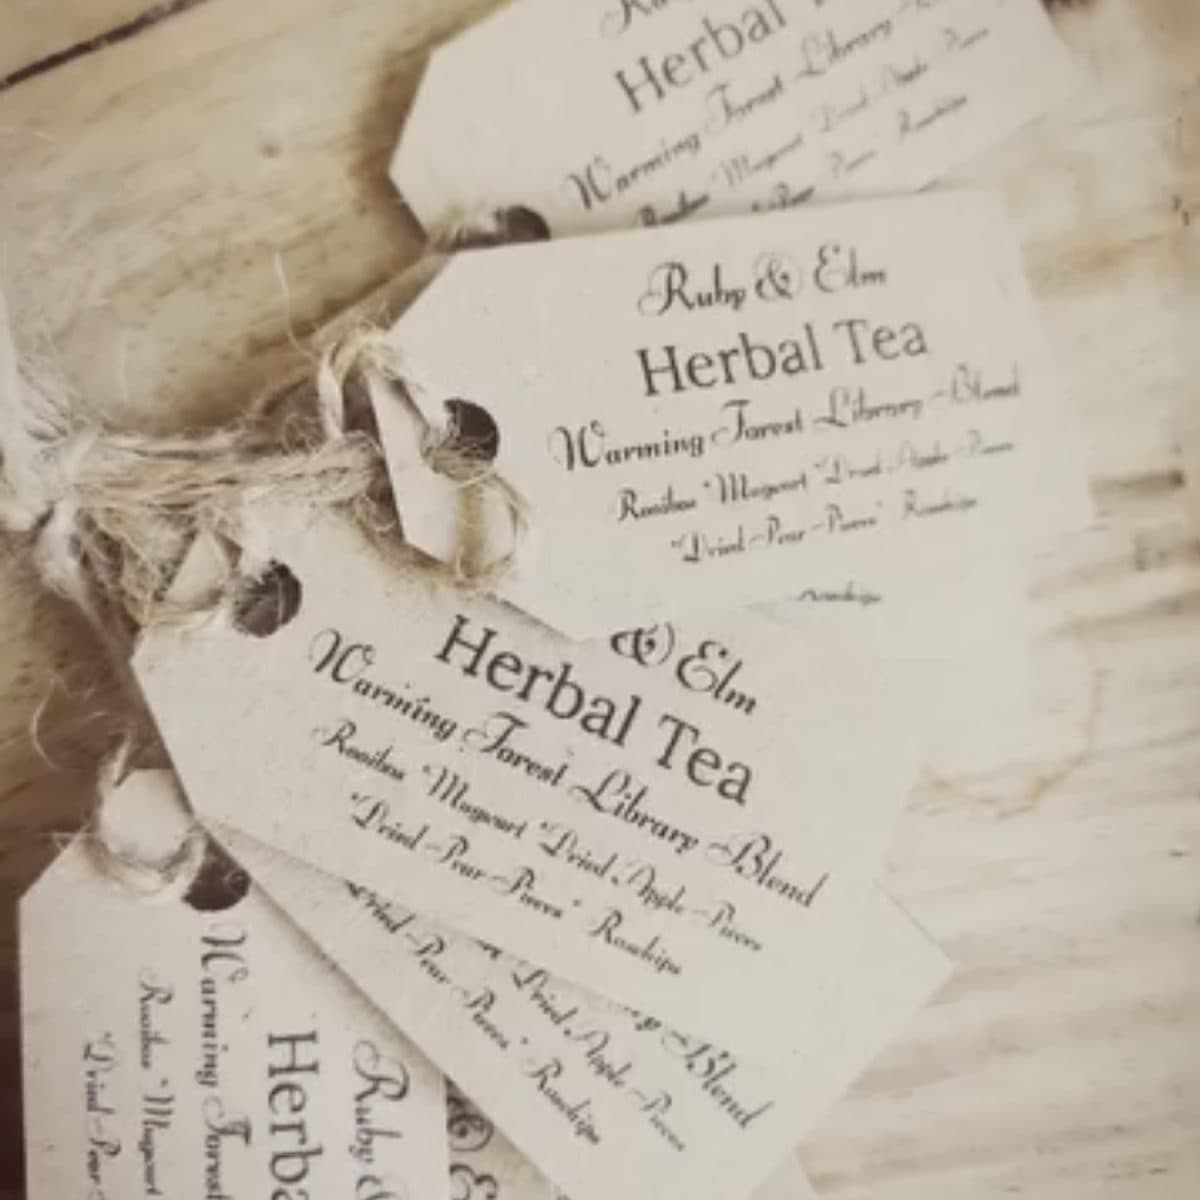 Herbal
Warming Forest Library
Mugwort Dried Apple Pieces
Rosehips
Ruby & Elm
Herbal Tea
Warming Forest Library Blend
Rooibos *Mugwort *Dried Apple Pieces
*Dried Pear Pieces* Rosehips
Rosehips
& Elm
Herbal Tea
Warming Forest Library Blend
Rooibos *Mugwort *Dried Apple Pieces
*Dried Pear Pieces* Rosehips
Blend
Dried Apple Pieces
Dried Pear Pieces* Rosehips
Ruby &
Herba
Warming Forest
Rooibos *Mugwort
*Dried Pear
& E